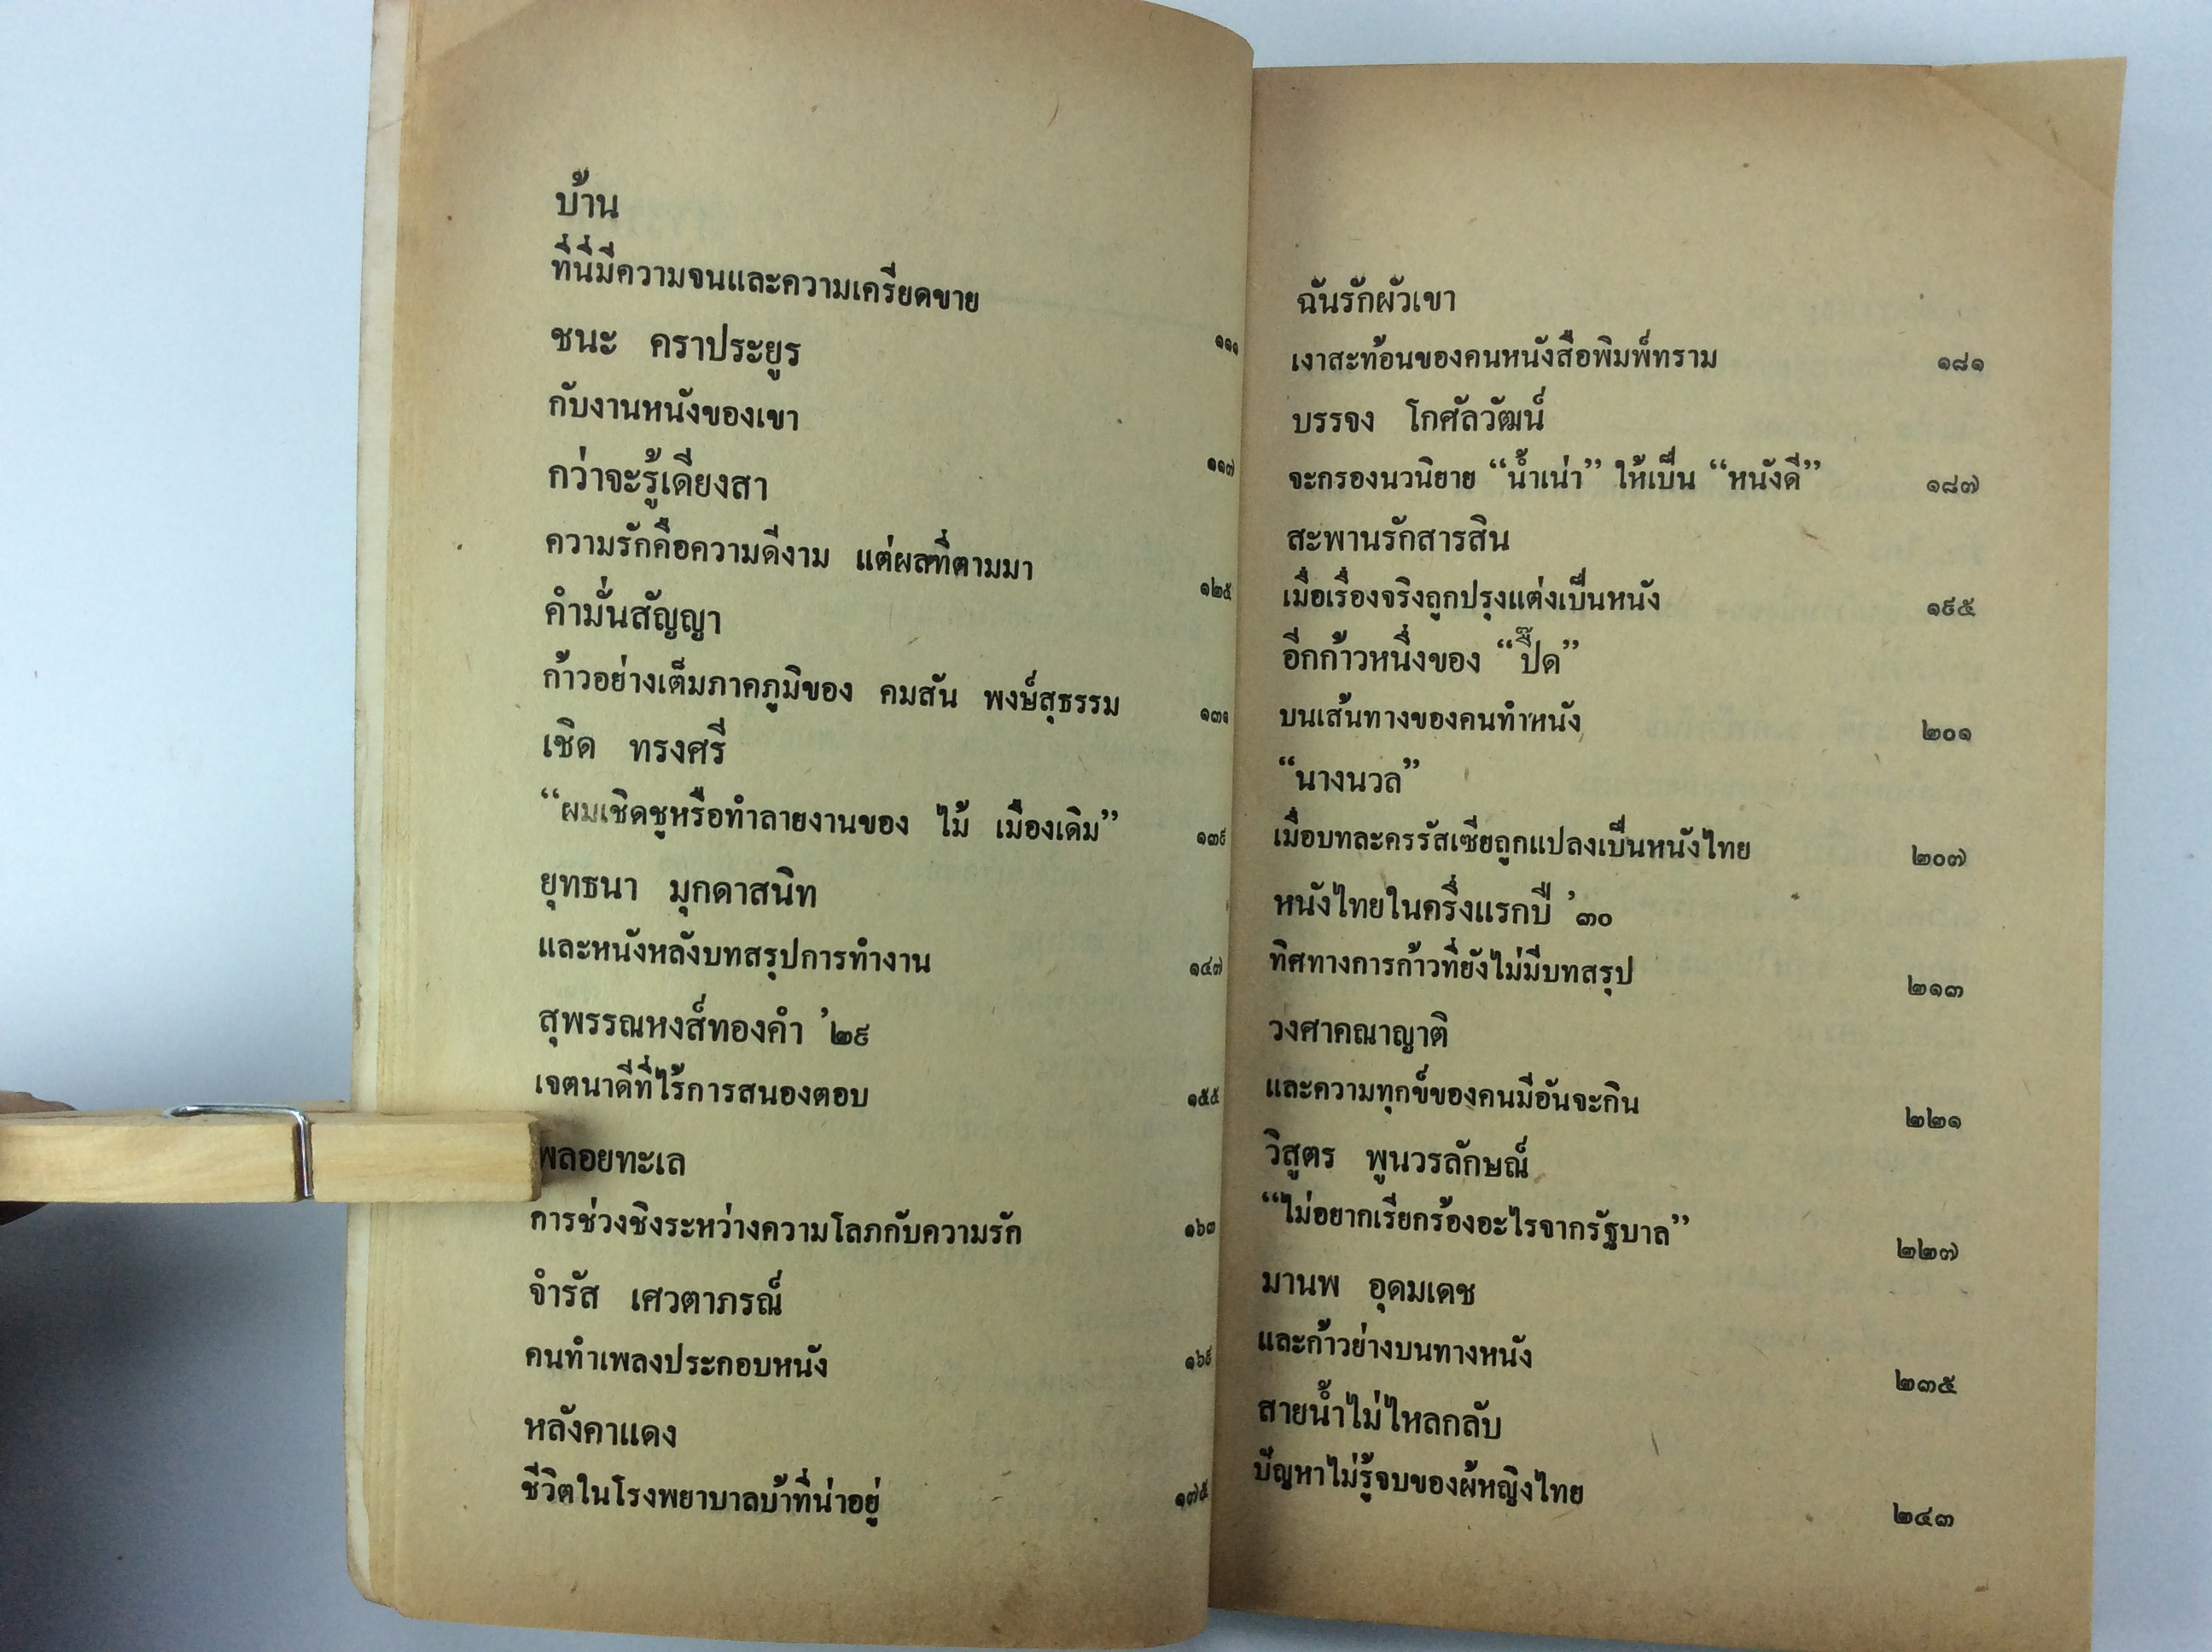 บ้าน
ที่นี่มีความจนและความเครียดขาย ๑๑๑
ชนะ คราประยูร
กับงานหนังของเขา ๑๑๗
กว่าจะรู้เดียงสา
ความรักคือความดีงาม แต่ผลที่ตามมา ๑๒๕
คำมั่นสัญญา
ก้าวอย่างเต็มภาคภูมิของ คมสัน พงษ์สุธรรม ๑๓๑
เชิด ทรงศรี
“ผมเชิดชูหรือทำลายงานของ ไม้ เมืองเดิม” ๑๓๙
ยุทธนา มุกดาสนิท
และหนังหลังบทสรุปการทำงาน ๑๔๗
สุพรรณหงส์ทองคำ ’๒๙
เจตนาดีที่ไร้การสนองตอบ ๑๕๕
พลอยทะเล
การช่วงชิงระหว่างความโลภกับความรัก ๑๖๓
จำรัส เศวตาภรณ์
คนทำเพลงประกอบหนัง ๑๖๙
หลังคาแดง
ชีวิตในโรงพยาบาลบ้าที่น่าอยู่ ๑๗๕
ฉันรักผัวเขา
เงาสะท้อนของคนหนังสือพิมพ์ทราม ๑๘๑
บรรจง โกศัลวัฒน์
จะกรองนวนิยาย “น้ำเน่า” ให้เป็น “หนังดี” ๑๘๗
สะพานรักสารสิน
เมื่อเรื่องจริงถูกปรุงแต่งเป็นหนัง ๑๙๕
อีกก้าวหนึ่งของ “ปื๊ด”
บนเส้นทางของคนทำหนัง ๒๐๑
“นางนวล”
เมื่อบทละครรัสเซียถูกแปลงเป็นหนังไทย ๒๐๗
หนังไทยในครึ่งแรกปี ’๓๐
ทิศทางการก้าวที่ยังไม่มีบทสรุป ๒๑๓
วงศาคณาญาติ
และความทุกข์ของคนมีอันจะกิน ๒๒๑
วิสูตร พูนวรลักษณ์
“ไม่อยากเรียกร้องอะไรจากรัฐบาล” ๒๒๗
มานพ อุดมเดช
และก้าวย่างบนทางหนัง ๒๓๕
สายน้ำไม่ไหลกลับ
ปัญหาไม่รู้จบของผู้หญิงไทย ๒๔๓